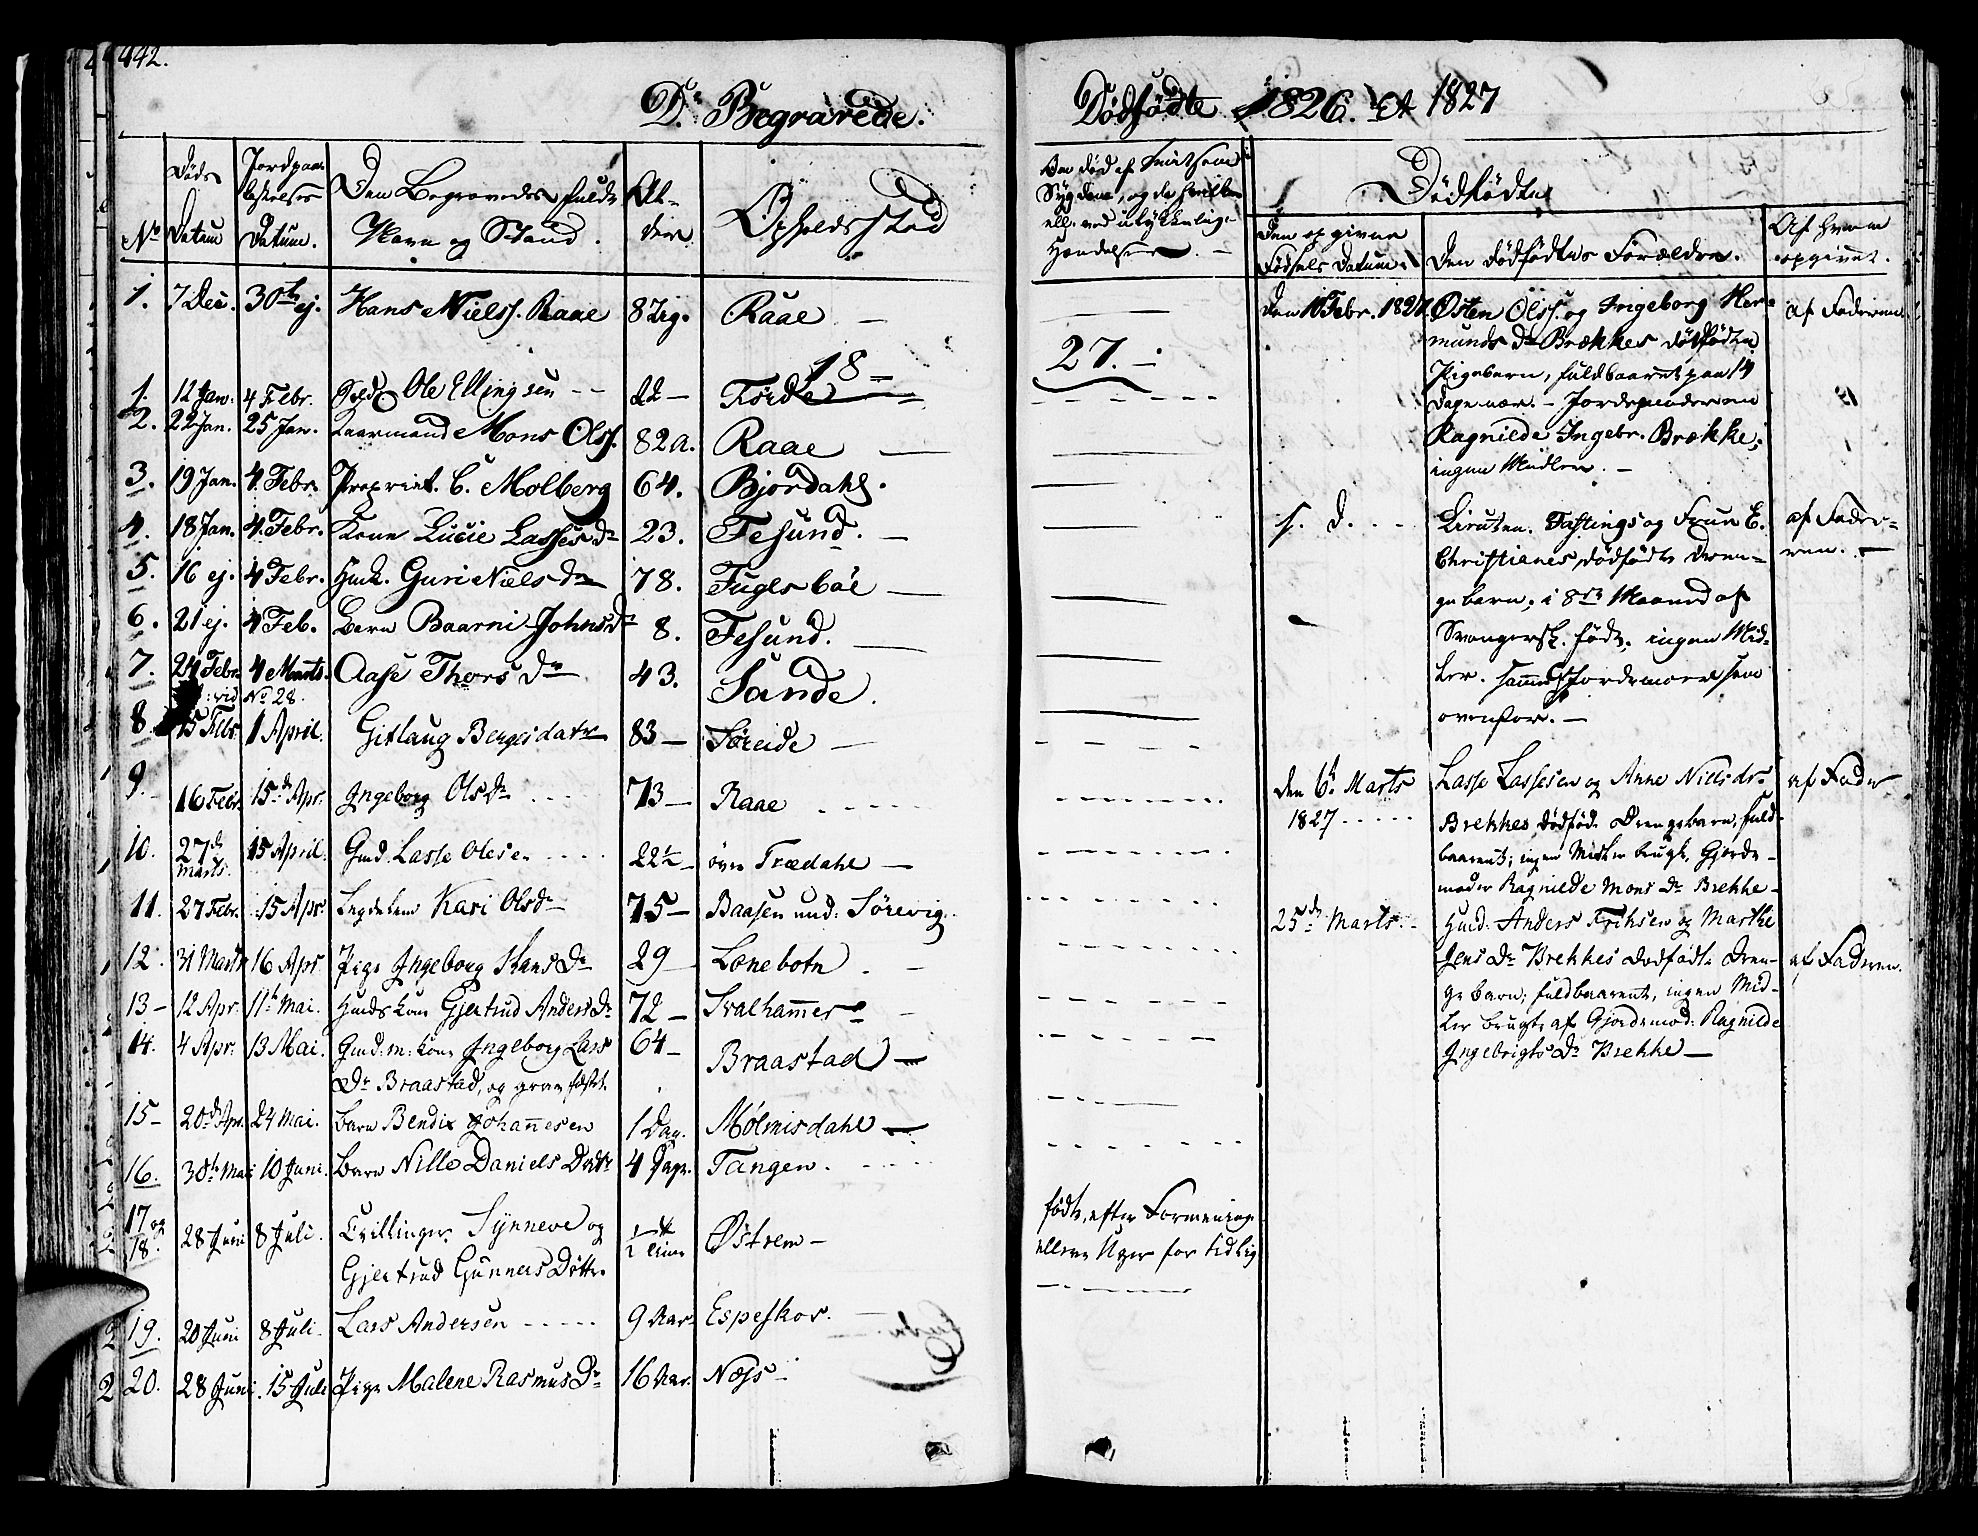 442.
D. Begravede.
No
Døds Datum
Jordpaakastelses Datum.
Den Begravedes fulde Navn og Stand.
Alder
Opholdssted
1. 7 Dec. 30te ej. Hans Nielss. Raae 82 Raae
18
1. 12 Jan. 4 Febr. Ole Ellingsen 22 Førde
2. 22 Jan. 25 Jan. Kaarmand Mons Olss. 82 a. Raae
3. 19 Jan. 4. Febr. Propriet. C. Molberg 64. Bjordahl.
4. 18 Jan. 4. Febr. Kone Lucie Lasses Dr 23. Fesund.
5. 16 ej. 4 Febr. Huusk. Guri Niels Dr 78. Fuglsbøe
6. 21 ej. 4 Feb. Barn Baarni Johns Dr 8. Fesund.
7. 24 Febr. 4 Marts. Aase Thors Dr 43. Sande.
vid No 28.
8. 15 Febr. 1 April. Gitlaug Bergesdatr 83 Søreide
9. 16 Febr. 15de Apr. Ingeborg Ols Dr 73 Raae
10. 27de Marts. 15 April. Gmd. Lasse Olesen 22½ øvre Trædahl
11. 27 Febr. 15 Apr. Legdelem Kari Olsdr 75 Baasen und. Sørevig.
12. 31 Marts 16 Apr. Pige Ingeborg Hans Dr 29 Lonebotn
13 12 Apr. 11te Mai. Huusm. Kone Gjertrud Anders Dr 72 Svalhammer
14. 4 Apr. 13 Mai. Gmd: m: Kone Ingeborg Lars 64 Braastad
Dr Braastad, og gravfæstet
15 20de Apr. 24 Mai. Barn Bendix Johannesen 1 Dag. Mølmisdahl
16. 30te Mai 10 Juni. Barn Nille Daniels Datr 4 Dage. Tangen.
17 og 18. 28 Juni 8 Juli. Tvillinger Synneve og Østrem
Gjertrud Gunners Døttr.
19. 20 Juni 8 Juli. Lars Andersen 9 Aar. Espeskor.
20. 28 Juni. 15 Juli Pige Malene Rasmus Dr 16 Aar. Næss
Dødfødte 1826. et 1827
Om død af smitsom
Sygdom, og da hvilken
ell. ved ulykkelige
Hændelser.
27.
født, efter Formening
elleve Uger for tidlig
Dødfødte
Den opgivne
Fødsels Datum.
Den dødfødtes Forældre.
Af hvem
opgivet.
Den 10 Febr. 1827. Østen Olss. og Ingeborg Her-
munds Dr Brækkes dødfødte
Pigebarn, fuldbaaret paa 14
Dage nær. - Jordemoderen
Ragnilde Ingebr. Brække;
ingen Midler. -
af Faderen
s. d. Lieuten. Fastings og Frue E.
Christianes dødfødte Dren-
gebarn, i 8de Maaned af
Svangersk. født. ingen Mid-
ler. samme Jordemoer som
ovenfor. -
af Fader-
ren.
Den 6te Marts
1827
Lasse Lassesen og Anne Nielsdr
Brekkes dødfød. Drengebarn, fuld-
baarent; ingen Midler brugt, Gjorde-
moder Ragnilde Mons Dr Brekke
af Fader
25de Marts. Gmd. Anders Eriksen og Marthe
Jens Dr Brekkes dødfødte Dren-
gebarn; fuldbaarent, ingen Mid-
ler brugt af Gjordemod: Ragnilde
Ingebrigts Dr Brekke
af Faderen.